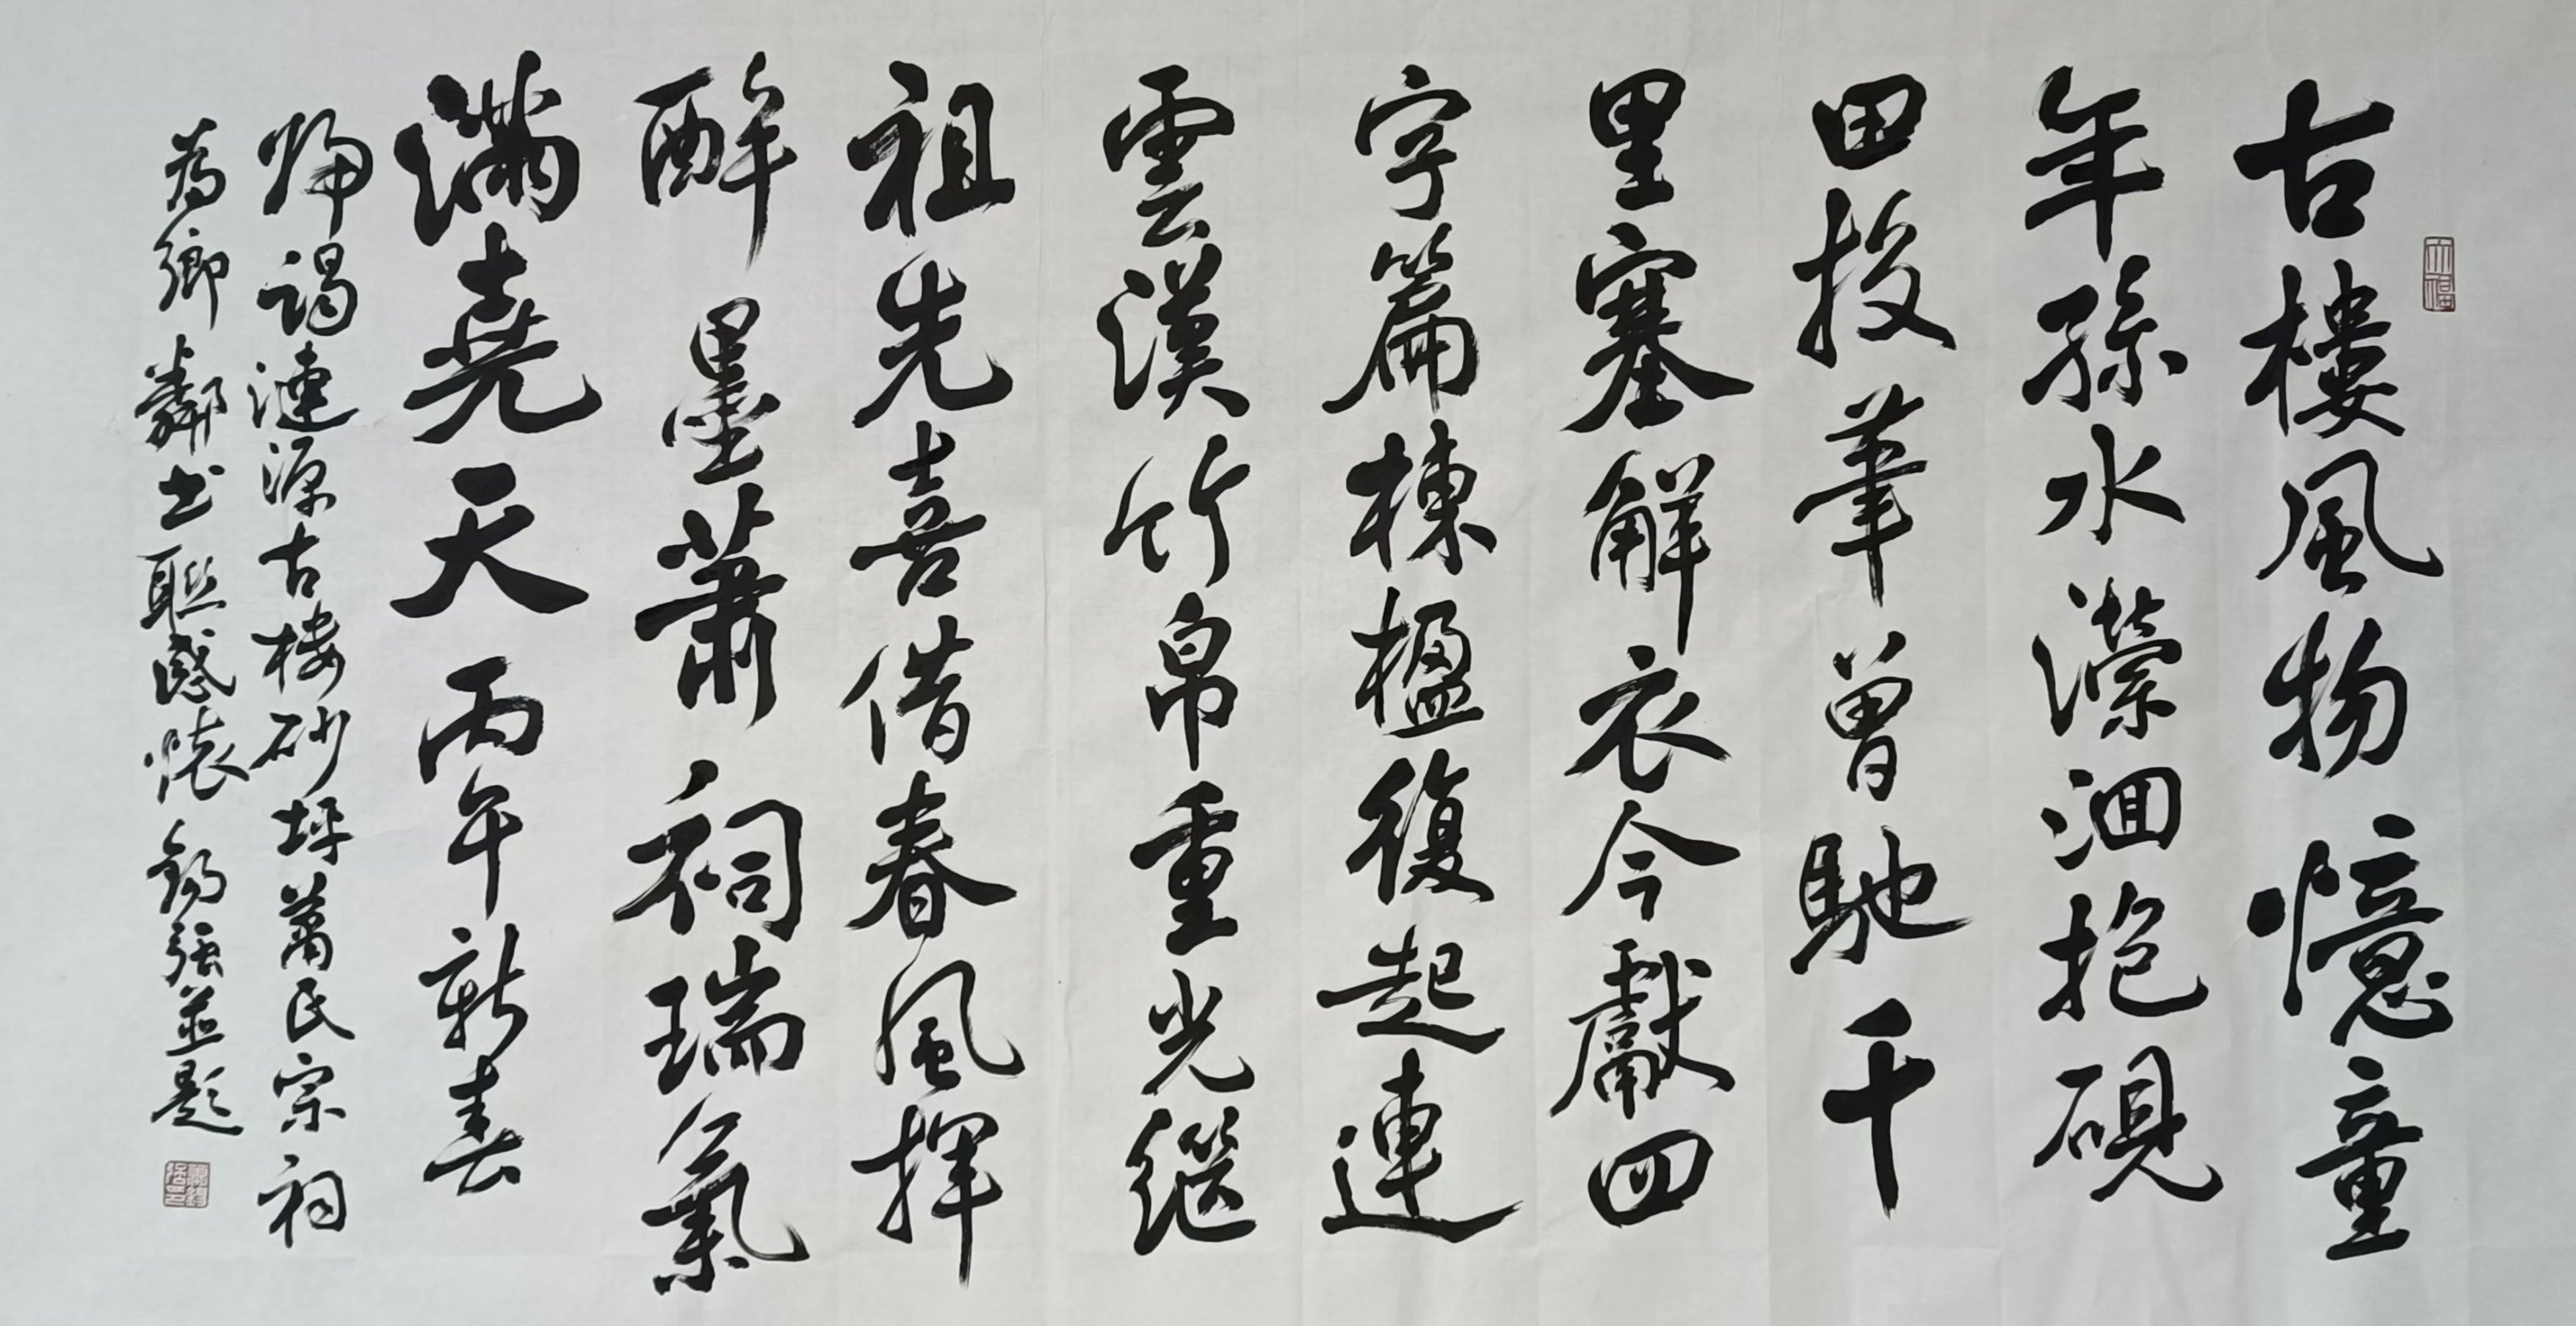 古樓風物憶童
年孫水瀠洄抱硯
田投筆曾馳千
里塞解衣今獻四
字篇棟楹復起連
雲漢竹帛重光繼
祖先喜借春風揮
醉墨蕭祠瑞氣
滿堯天丙午新春
歸謁漣源古樓砂坪蕭氏宗祠
為鄉鄰書聯感懷錫強並題